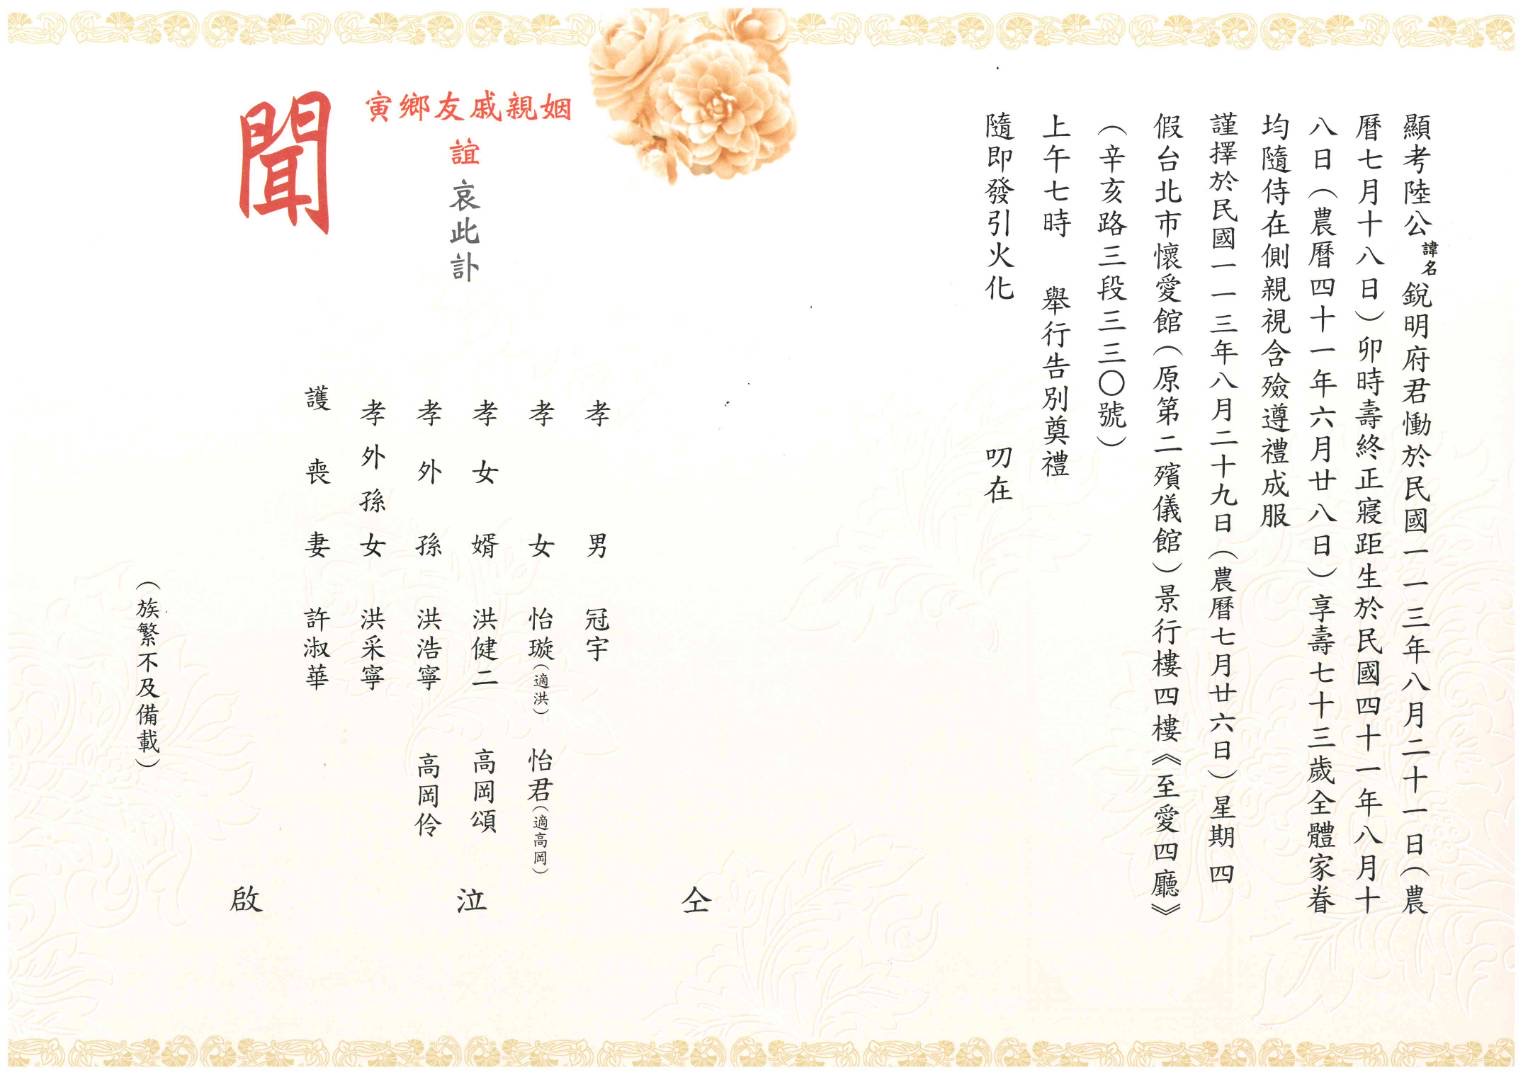 顯考陸公諱名銳明府君慟於民國一一三年八月二十一日（農
曆七月十八日）卯時壽終正寢距生於民國四十一年八月十
八日（農曆四十一年六月廿八日）享壽七十三歲全體家眷
均隨侍在側親視含殮遵禮成服
謹擇於民國一一三年八月二十九日（農曆七月廿六日）星期四
假台北市懷愛館（原第二殯儀館）景行樓四樓《至愛四廳》
（辛亥路三段三三〇號）
上午七時 舉行告別奠禮
隨即發引火化 叨在
姻親戚友鄉寅
誼 哀此訃
聞
孝男 冠宇
孝女 怡璇（適洪） 怡君（適高岡）
孝女婿 洪健二 高岡頌
孝外孫 洪浩寧 高岡伶
孝外孫女 洪采寧
護喪妻 許淑華
仝 泣 啟
（族繁不及備載）